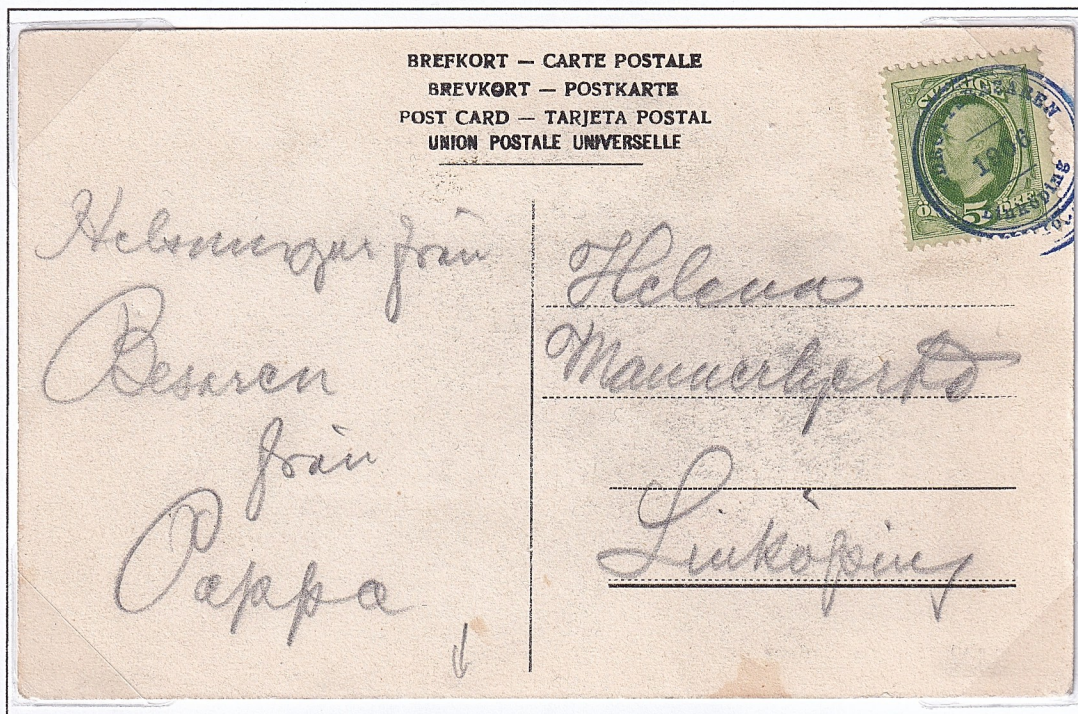 BREFKORT — CARTE POSTALE
BREVKORT — POSTKARTE
POST CARD — TARJETA POSTAL
UNION POSTALE UNIVERSELLE
Helsningar från
Besaren
från
Pappa
Helena
Mannerhjerta
Linköping
5
Linköping